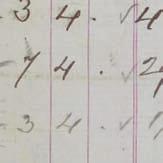 3 4 . √4
74 . √2
34 . √1